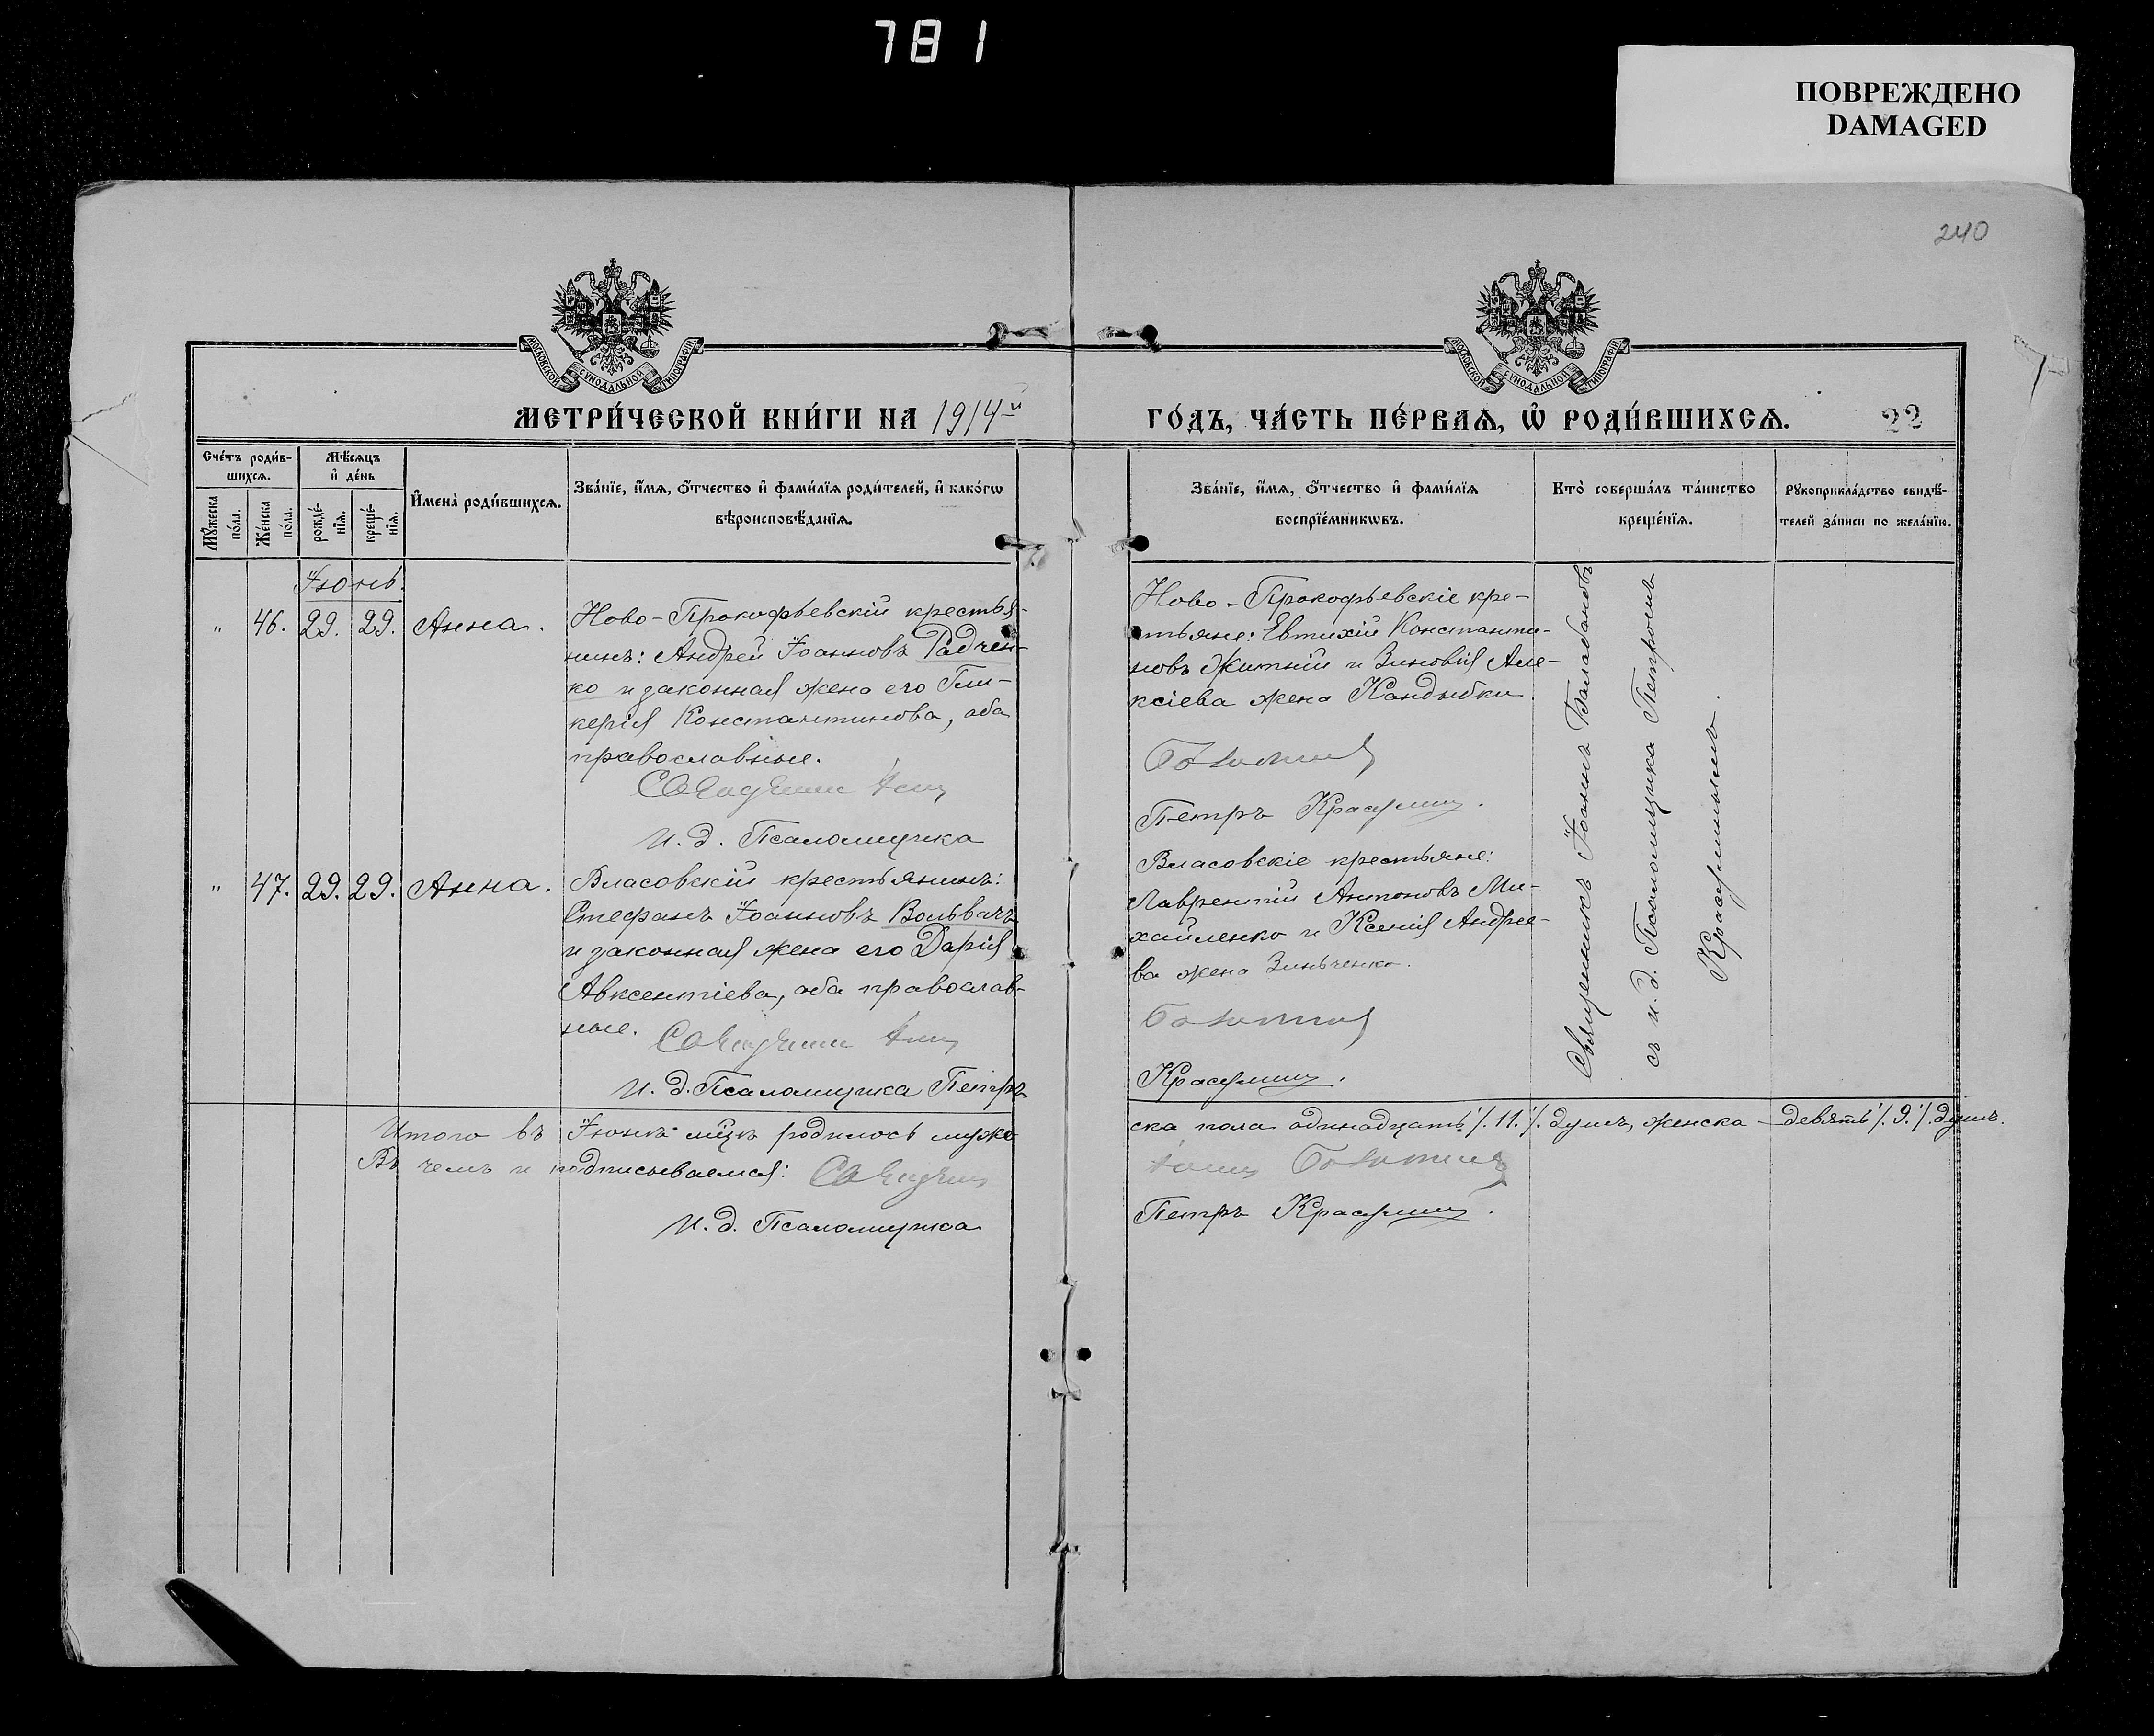 781
ПОВРЕЖДЕНО
DAMAGED
240
МОСКОВСКОЙ СѴНОДАЛЬНОЙ ТИПОГРАФІИ
МОСКОВСКОЙ СѴНОДАЛЬНОЙ ТИПОГРАФІИ
МЕТРИ́ЧЕСКОЙ КНИ́ГИ НА 1914й
ГО́ДЪ, ЧА́СТЬ ПЕ́РВАѦ, Ѡ҆ РОДИ́ВШИХСѦ.
22
Сче́тъ роди́в-
шихсѧ.
Мѣ́сѧцъ
и҆ де́нь
Мꙋ́жеска
по́ла.
Же́нска
по́ла.
рожде́-
нїѧ.
креще́-
нїѧ.
И҆мена̀ роди́вшихсѧ.
Зва́нїе, и҆́мѧ, ѻ҆́тчество и҆ фами́лїѧ роди́телей, и҆ како́гѡ
вѣроисповѣ́данїѧ.
Зва́нїе, и҆́мѧ, ѻ҆́тчество и҆ фами́лїѧ
воспрїе́мникѡвъ.
Кто̀ соверша́лъ та́инство
креще́нїѧ.
Рꙋкоприкла́дство свидѣ́-
телей за́писи по жела́нїю.
Іюнь.
" 46. 29. 29. Анна.
Ново-Прокофьевскій крестья-
нинъ: Андрей Іоанновъ Радчен-
ко и законная жена его Гли-
керія Константинова, оба
православные.
Священникъ
И. д. Псаломщика
Ново-Прокофьевскіе кре-
стьяне: Евтихій Константи-
новъ Житній и Зиновія Але-
ксіева жена Кандыбки
Петръ Красулинъ.
" 47. 29. 29. Анна.
Власовскій крестьянинъ:
Стефанъ Іоанновъ Вольвачъ
и законная жена его Дарія
Авксентіева, оба православ-
ные. Священникъ
И. д. Псаломщика Петръ
Власовскіе крестьяне:
Лаврентій Антоновъ Ми-
хайленко и Ксенія Андрее-
ва жена Зинченко.
Красулинъ.
Священникъ Іоаннъ Балабановъ
съ и. д. Псаломщика Петромъ
Красулинымъ.
Итого въ Іюнѣ мцѣ родилось муже
ска пола одинадцать /. 11. /. душъ, женска – девять /. 9. /. душъ.
Въ чемъ и подписываемся: Священникъ
И. д. Псаломщика
Петръ Красулинъ.